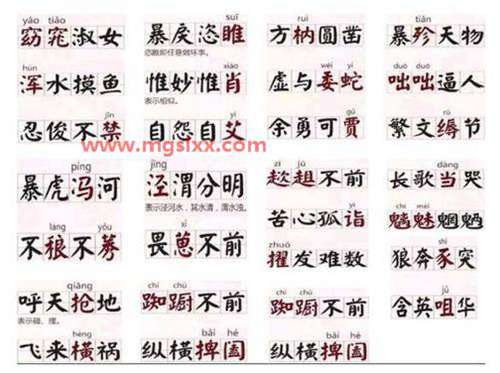 yáo tiǎo
窈窕淑女
hún
浑水摸鱼
jīn
忍俊不禁
píng
暴虎冯河
láng yǒu
不稂不莠
qiāng
呼天抢地
hèng
飞来横祸
suī
暴戾恣睢
恣睢即任意做坏事。
xiào
惟妙惟肖
表示相似。
yì
自怨自艾
www.mgslxx.com
jīng
泾渭分明
表示泾河水，其水清，渭水浊。
xǐ
畏葸不前
chí chú
踟蹰不前
bǎi hé
纵横捭阖
ruì
方枘圆凿
wēi yí
虚与委蛇
gǔ
余勇可贾
zī jū
趑趄不前
yì
苦心孤诣
zhuó
擢发难数
chí chú
踟蹰不前
bǎi hé
纵横捭阖
tiǎn
暴殄天物
duō duō
咄咄逼人
rù
繁文缛节
dàng
长歌当哭
魑魅魍魉
狼奔豕突
jǔ
含英咀华